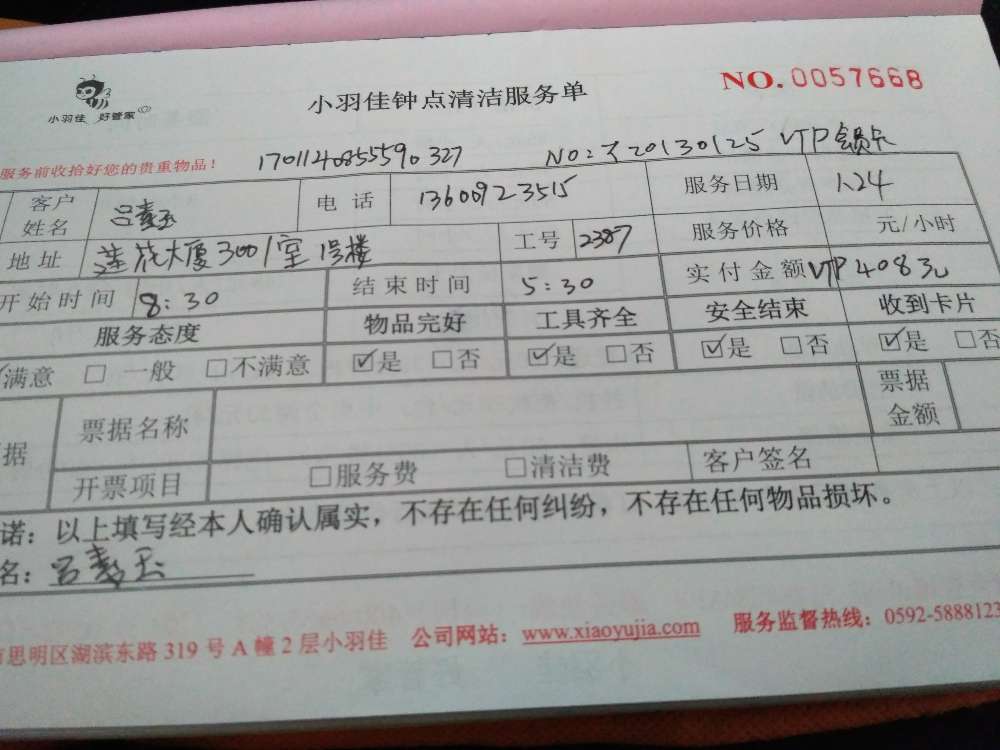 小羽佳 好管家
小羽佳钟点清洁服务单
NO.0057668
服务前收拾好您的贵重物品!
1701140855590327 NO: 20130125 VIP会员卡
客户姓名 吕 玉 电话 13600923515 服务日期 1.24
地址 莲花大厦3001室1号楼 工号 2387 服务价格 元/小时
开始时间 8:30 结束时间 5:30 实付金额 VIP408元
服务态度 物品完好 工具齐全 安全结束 收到卡片
满意 □ 一般 □不满意 ☑是 □否 ☑是 □否 ☑是 □否 ☑是 □否
据 票据名称 票据金额
开票项目 □服务费 □清洁费 客户签名
诺:以上填写经本人确认属实,不存在任何纠纷,不存在任何物品损坏。
名:吕 玉
思明区湖滨东路 319 号 A 幢 2 层小羽佳 公司网站:www.xiaoyujia.com 服务监督热线:0592-5888123